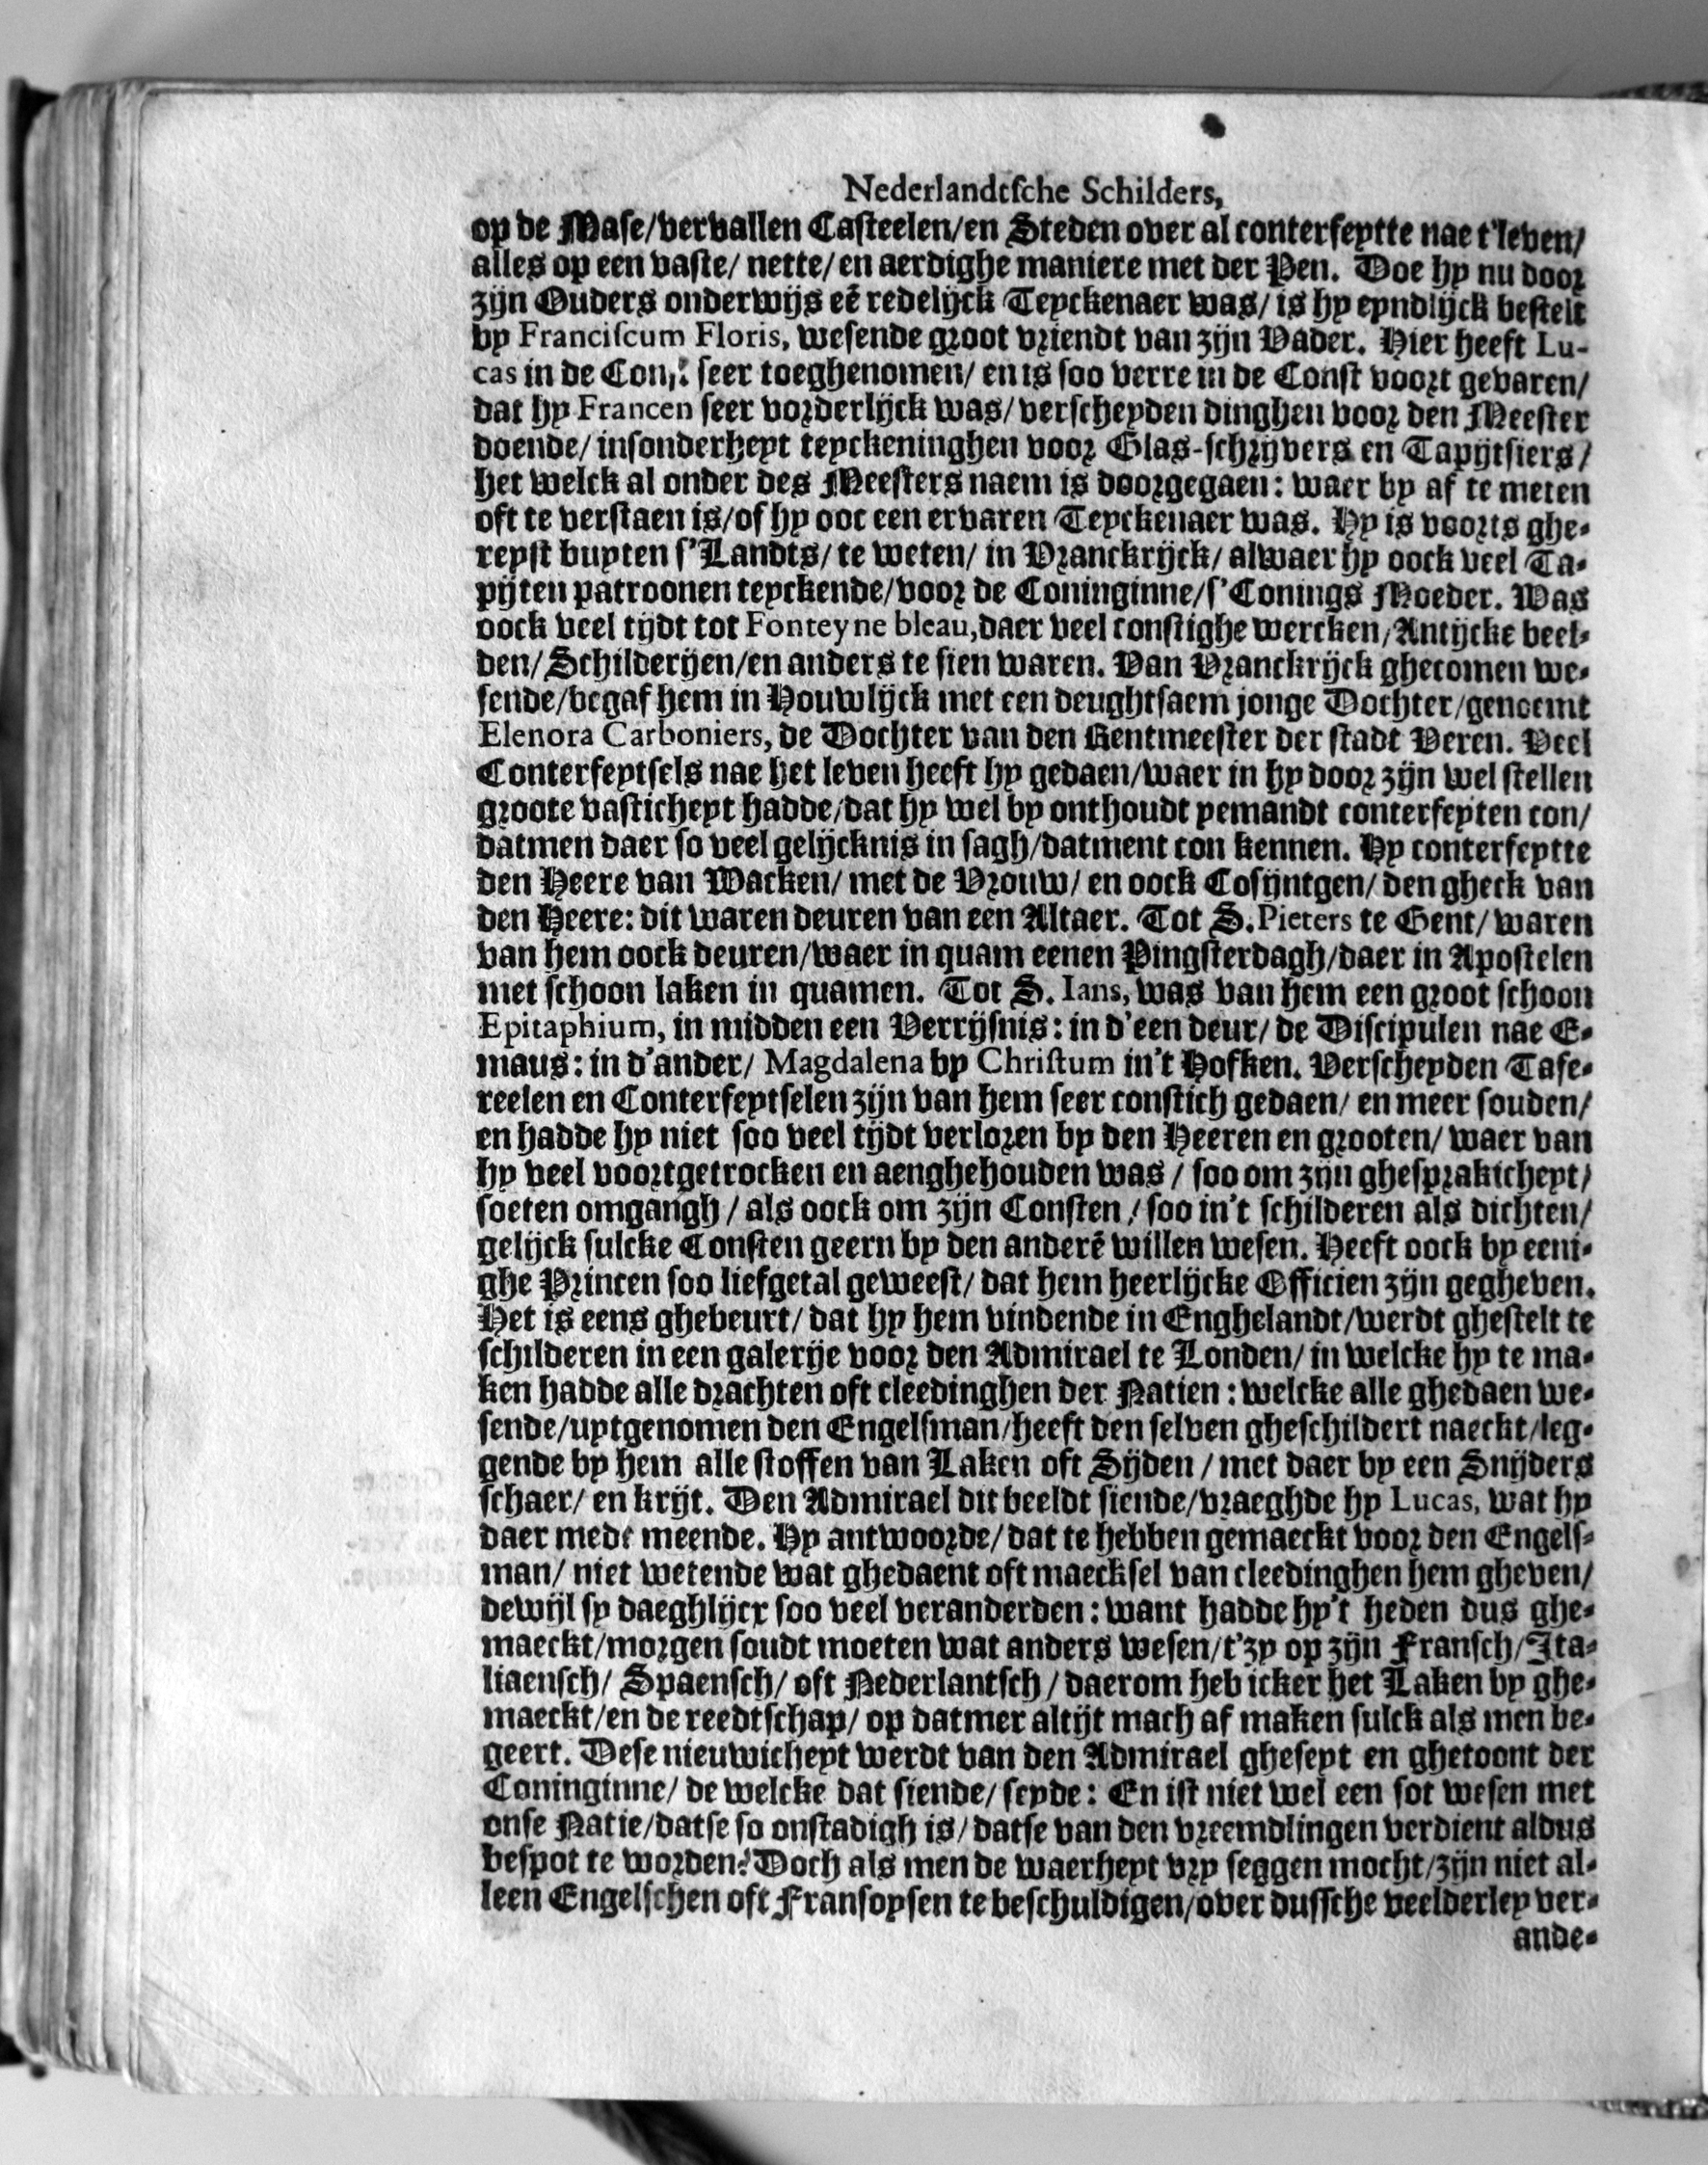 Nederlandtsche Schilders,
op de Mase/vervallen Casteelen/en Steden over al conterfeytte nae t'leven/
alles op een vaste/ nette/ en aerdighe maniere met der Pen. Doe hy nu door
zijn Ouders onderwijs eē redelijck Teyckenaer was/ is hy eyndlijck bestelt
by Franciscum Floris, wesende groot vriendt van zijn Vader. Hier heeft Lu-
cas in de seer toeghenomen/ en is soo verre in de Const voort gevaren/
dat hy Francen seer vorderlijck was/ verscheyden dinghen voor den Meester
doende/ insonderheyt teyckeninghen voor Glas-schrijvers en Tapijtsiers/
het welck al onder des Meesters naem is doorgegaen: waer by af te meten
oft te verstaen is/of hy ooc een ervaren Teyckenaer was. Hy is voorts ghe-
reyst buyten s'Landts/ te weten/ in Vranckrijck/ alwaer hy oock veel Ta-
pijten patroonen teyckende/voor de Coninginne/s'Conings Moeder. Was
oock veel tijdt tot Fonteyne bleau, daer veel constighe wercken/Antijcke beel-
den/Schilderijen/en anders te sien waren. Van Vranckrijck ghecomen we-
sende/begaf hem in Houwlijck met een deughtsaem jonge Dochter/genoemt
Elenora Carboniers, de Dochter van den Rentmeester der stadt Veren. Veel
Conterfeytsels nae het leven heeft hy gedaen/waer in hy door zijn wel stellen
groote vasticheyt hadde/dat hy wel by onthoudt yemandt conterfeyten con/
datmen daer so veel gelijcknis in sagh/datment con kennen. Hy conterfeytte
den Heere van Wacken/ met de Vrouw/ en oock Cosijntgen/ den gheck van
den Heere: dit waren deuren van een Altaer. Tot S. Pieters te Gent/ waren
van hem oock deuren/waer in quam eenen Pingsterdagh/daer in Apostelen
met schoon laken in quamen. Tot S. Ians, was van hem een groot schoon
Epitaphium, in midden een Verrijsnis: in d'een deur/ de Discipulen nae E-
maus: in d'ander/ Magdalena by Christum in't Hofken. Verscheyden Tafe-
reelen en Conterfeytselen zijn van hem seer constich gedaen/ en meer souden/
en hadde hy niet soo veel tijdt verloren by den Heeren en grooten/ waer van
hy veel voortgetrocken en aenghehouden was/ soo om zijn ghesprakicheyt/
soeten omgangh/ als oock om zijn Consten/ soo in't schilderen als dichten/
gelijck sulcke Consten geern by den anderē willen wesen. Heeft oock by eeni-
ghe Princen soo liefgetal geweest/ dat hem heerlijcke Officien zijn gegheven.
Het is eens ghebeurt/ dat hy hem vindende in Enghelandt/werdt ghestelt te
schilderen in een galerije voor den Admirael te Londen/ in welcke hy te ma-
ken hadde alle drachten oft cleedinghen der Natien: welcke alle ghedaen we-
sende/uytgenomen den Engelsman/heeft den selven gheschildert naeckt/leg-
gende by hem alle stoffen van Laken oft Sijden/ met daer by een Snijders
schaer/ en krijt. Den Admirael dit beeldt siende/vraeghde hy Lucas, wat hy
daer mede meende. Hy antwoorde/ dat te hebben gemaeckt voor den Engels-
man/ niet wetende wat ghedaent oft maecksel van cleedinghen hem gheven/
dewijl sy daeghlijcx soo veel veranderden: want hadde hy't heden dus ghe-
maeckt/morgen soudt moeten wat anders wesen/t'zy op zijn Fransch/Ita-
liaensch/ Spaensch/ oft Nederlantsch/ daerom heb icker het Laken by ghe-
maeckt/en de reedtschap/ op datmer altijt mach af maken sulck als men be-
geert. Dese nieuwicheyt werdt van den Admirael gheseyt en ghetoont der
Coninginne/ de welcke dat siende/ seyde: En ist niet wel een sot wesen met
onse Natie/datse so onstadigh is/ datse van den vreemdlingen verdient aldus
bespot te worden? Doch als men de waerheyt vry seggen mocht/zijn niet al-
leen Engelschen oft Fransoysen te beschuldigen/over dussche veelderley ver-
ande-